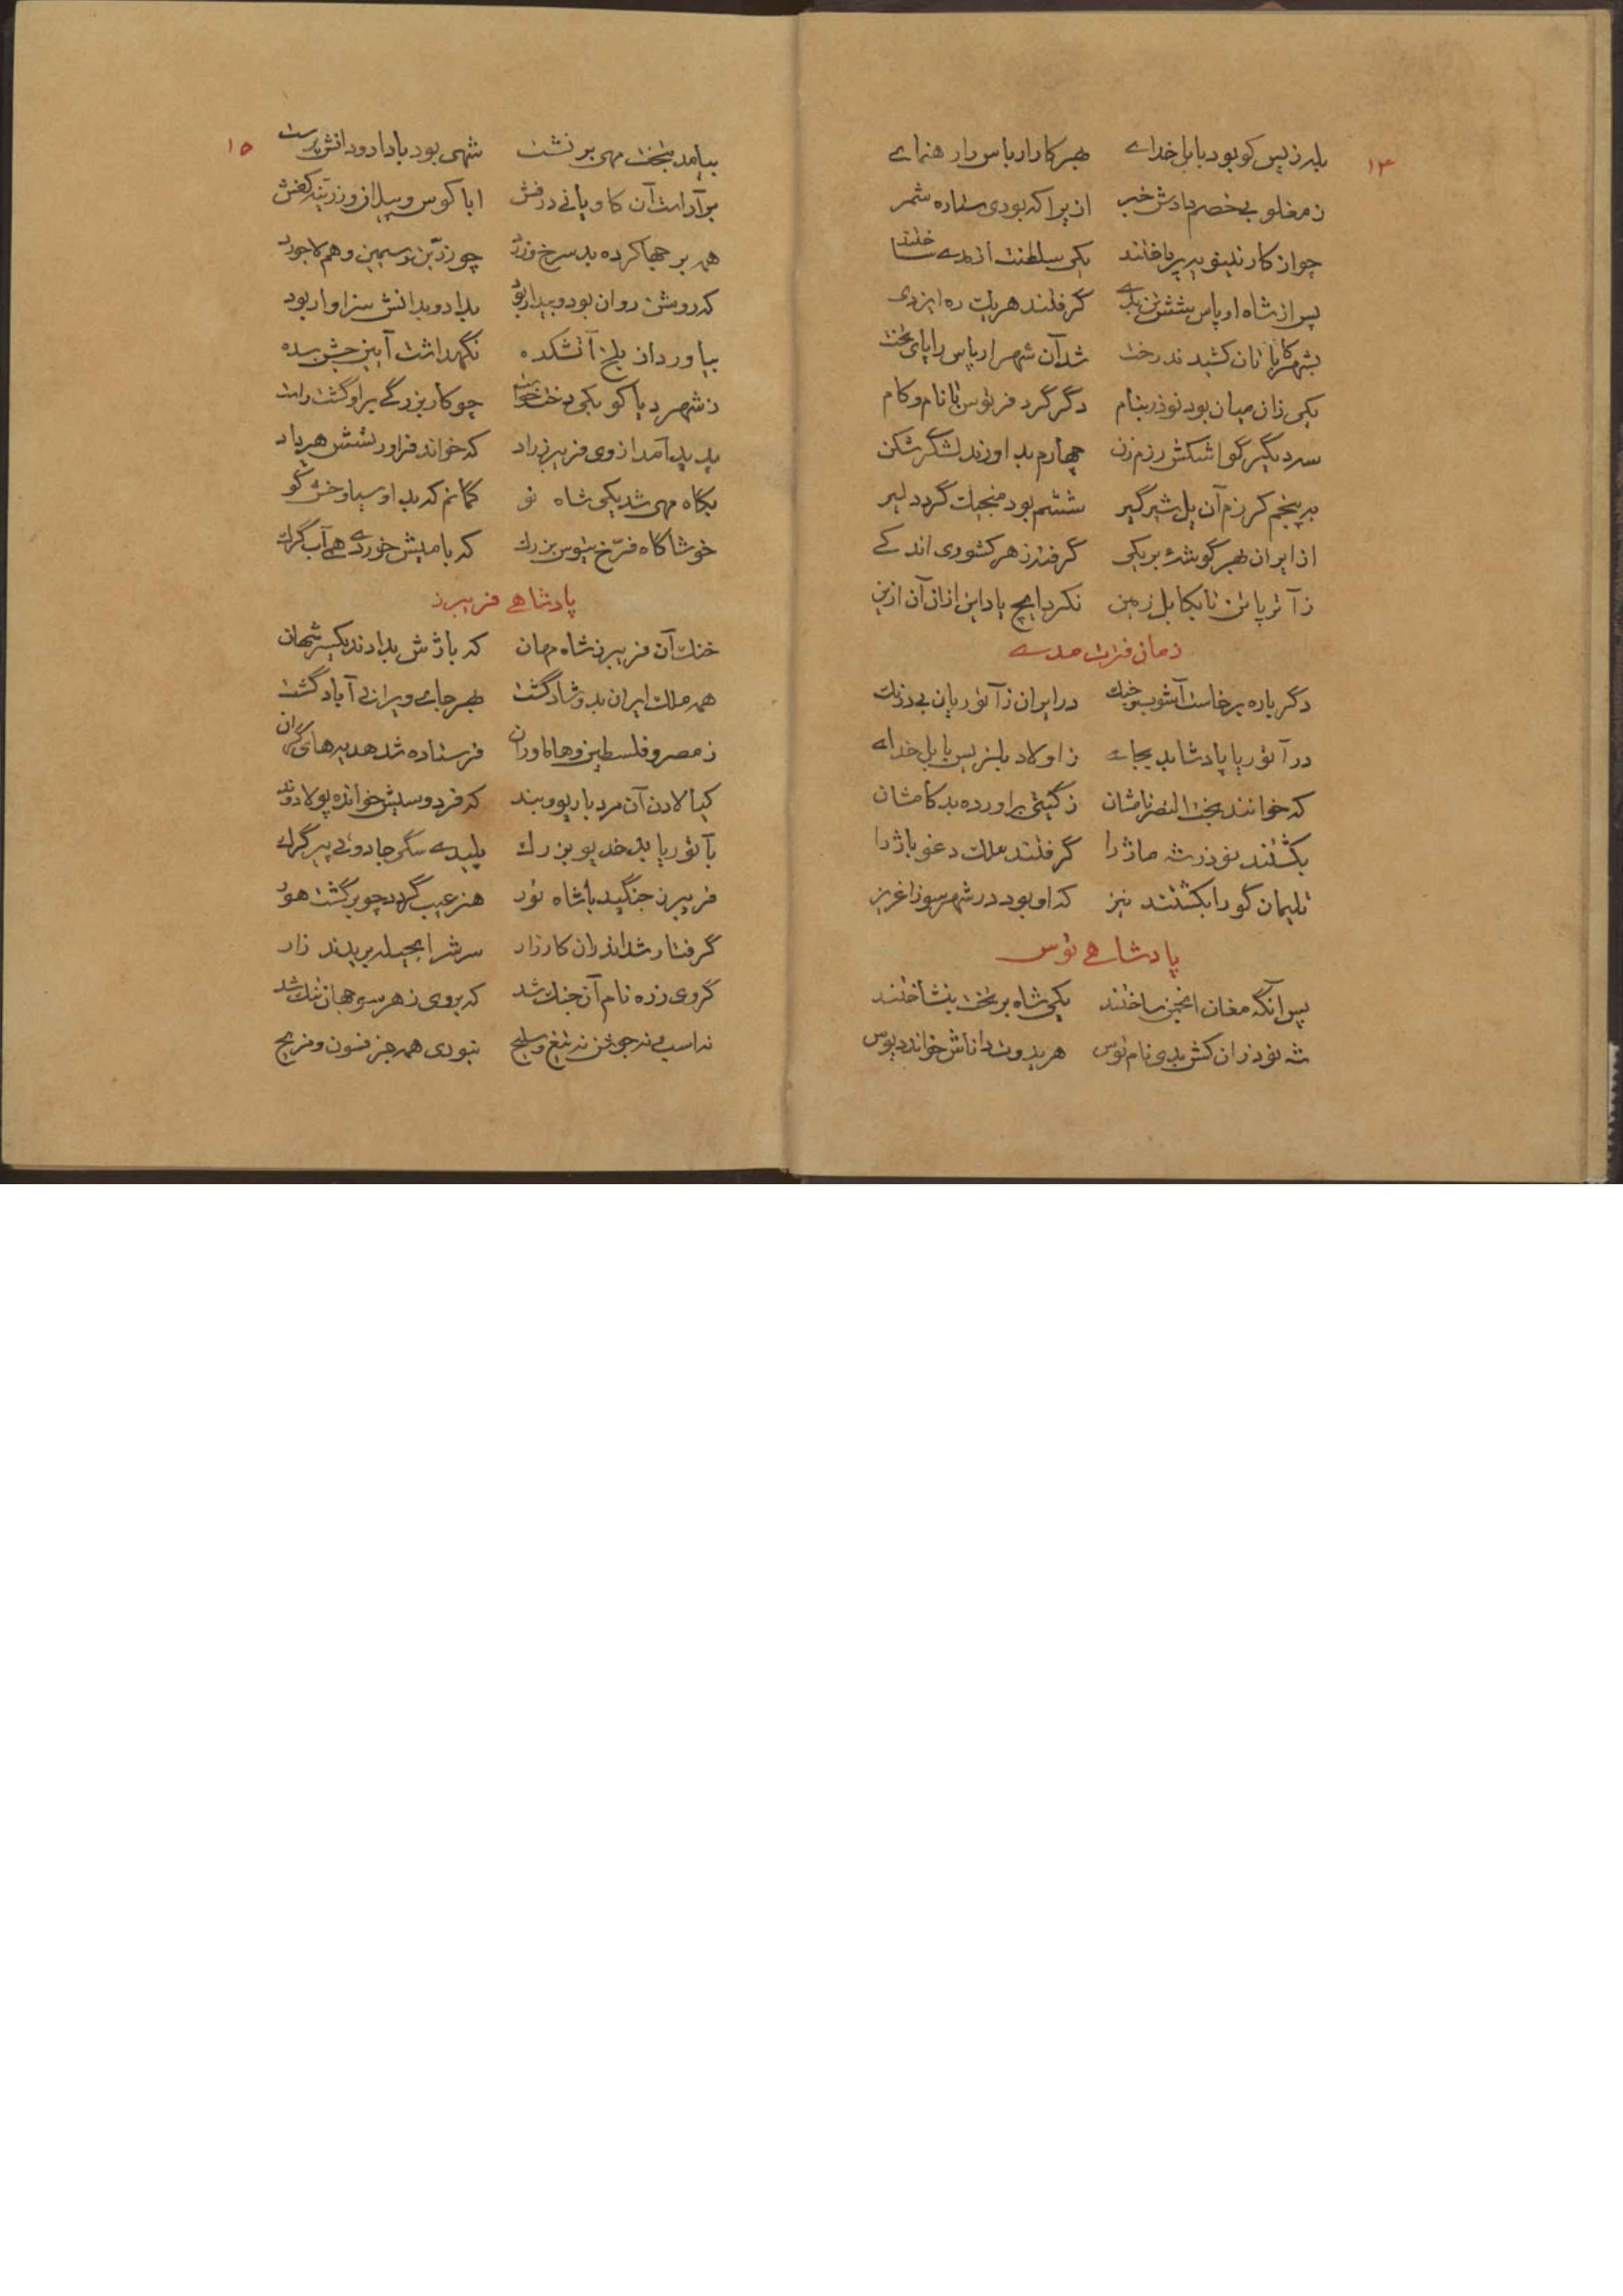 ۱۴
بلدزیس کو بود بابل خدای بهر کار ارباس را رهنمای
ز مغلوبی خصم دادش خبر ازیرا که بودی ستاره شمر
چو از کار نینویه پرداختند یکی سلطنت از مدی ساختند
پس از شاه ارباس شش تن بدی گرفتند هریک ره ایزدی
بشهر کزباتان کشیدند رخت شد آن شهر ارباس را پای تخت
یکی زان میان بود نوذر بنام دگر گرد فرتوس با نام و کام
سه دیگر گو اشکش رزم زن چهارم بد اوزند لشگر شکن
به پنجم کرزم آن یل شیرگیر ششم بود منجیک گرد دلیر
از ایران بهر گوشهٔ بر یکی گرفتند ز هر کشوری اندکی
ز آترپاتن تا بکابل زمین نکرد ایچ یاد این از آن آن ازین
زمان فترت مدی
دگر باره برخاست آشوب جنگ در ایران ز آثوریان بی درنگ
در آثوریا پادشا بد بجای ز اولاد بلزیس بابل خدای
که خوانند بخت النصر نامشان ز گیتی براورده بد کامشان
بکشتند نوذر شه ماژ را گرفتند ملک دغو باژ را
تلیمان گو را بکشتند نیز که او بود در شهر سوزا عزیز
پادشاهی توس
پس آنگه مغان انجمن ساختند یکی شاه بر تخت بنشاختند
شه نوذران کش بدی نام توس هریدوت داناش خواند دیوس
۱۵
بیامد بتخت مهی بر نشست شهی بود با داد و دانش پرست
برآراست آن کاویانی درفش ابا کوس و پیل از و زرینه کفش
همه برجها کرده بد سرخ و زرد چو زرین و سیمین و هم لاجورد
که روشن روان بود و بیدار بود بداد و بدانش سزاوار بود
بیاورد از بلخ آتشکده نگهداشت آیین جشن سده
ز شهر دیاکو یکی دخت خواست چو کار بزرگی بر او گشت راست
پدید آمد از وی فریبرز راد که خواند فراورتشش هریاد
بگاه مهی شد یکی شاه نو گمانم که بد او سیاوخش گو
خوشا گاه فرخ تیوس بزرک که با میش خوردی همی آب گرگ
پادشاهی فریبرز
خنک آن فریبرز شاه مهان که باژش بدادند یکسر شهان
همه ملک ایران بدو شاد گشت بهر جای ویرانی آباد گشت
ز مصر و فلسطین و هاماوران فرستاده شد هدیه‌های گران
کیالادن آن مرد با ریو و بند که فردوسیش خوانده پولادوند
بآثوریا بد خدیو بزرک پلیدی سگی جادوئی پیر گرگ
فریبرز جنگید با شاه تور هنر عیب گردد چو برگشت هور
گرفتار شد اندران کارزار سرش را بحیله بریدند زار
گروی زره نام آن جنگ شد که بر وی ز هر سو جهان تنک شد
نه اسب و نه جوشن نه تیغ و سلیح نبودی همه جز فسون و مزیح